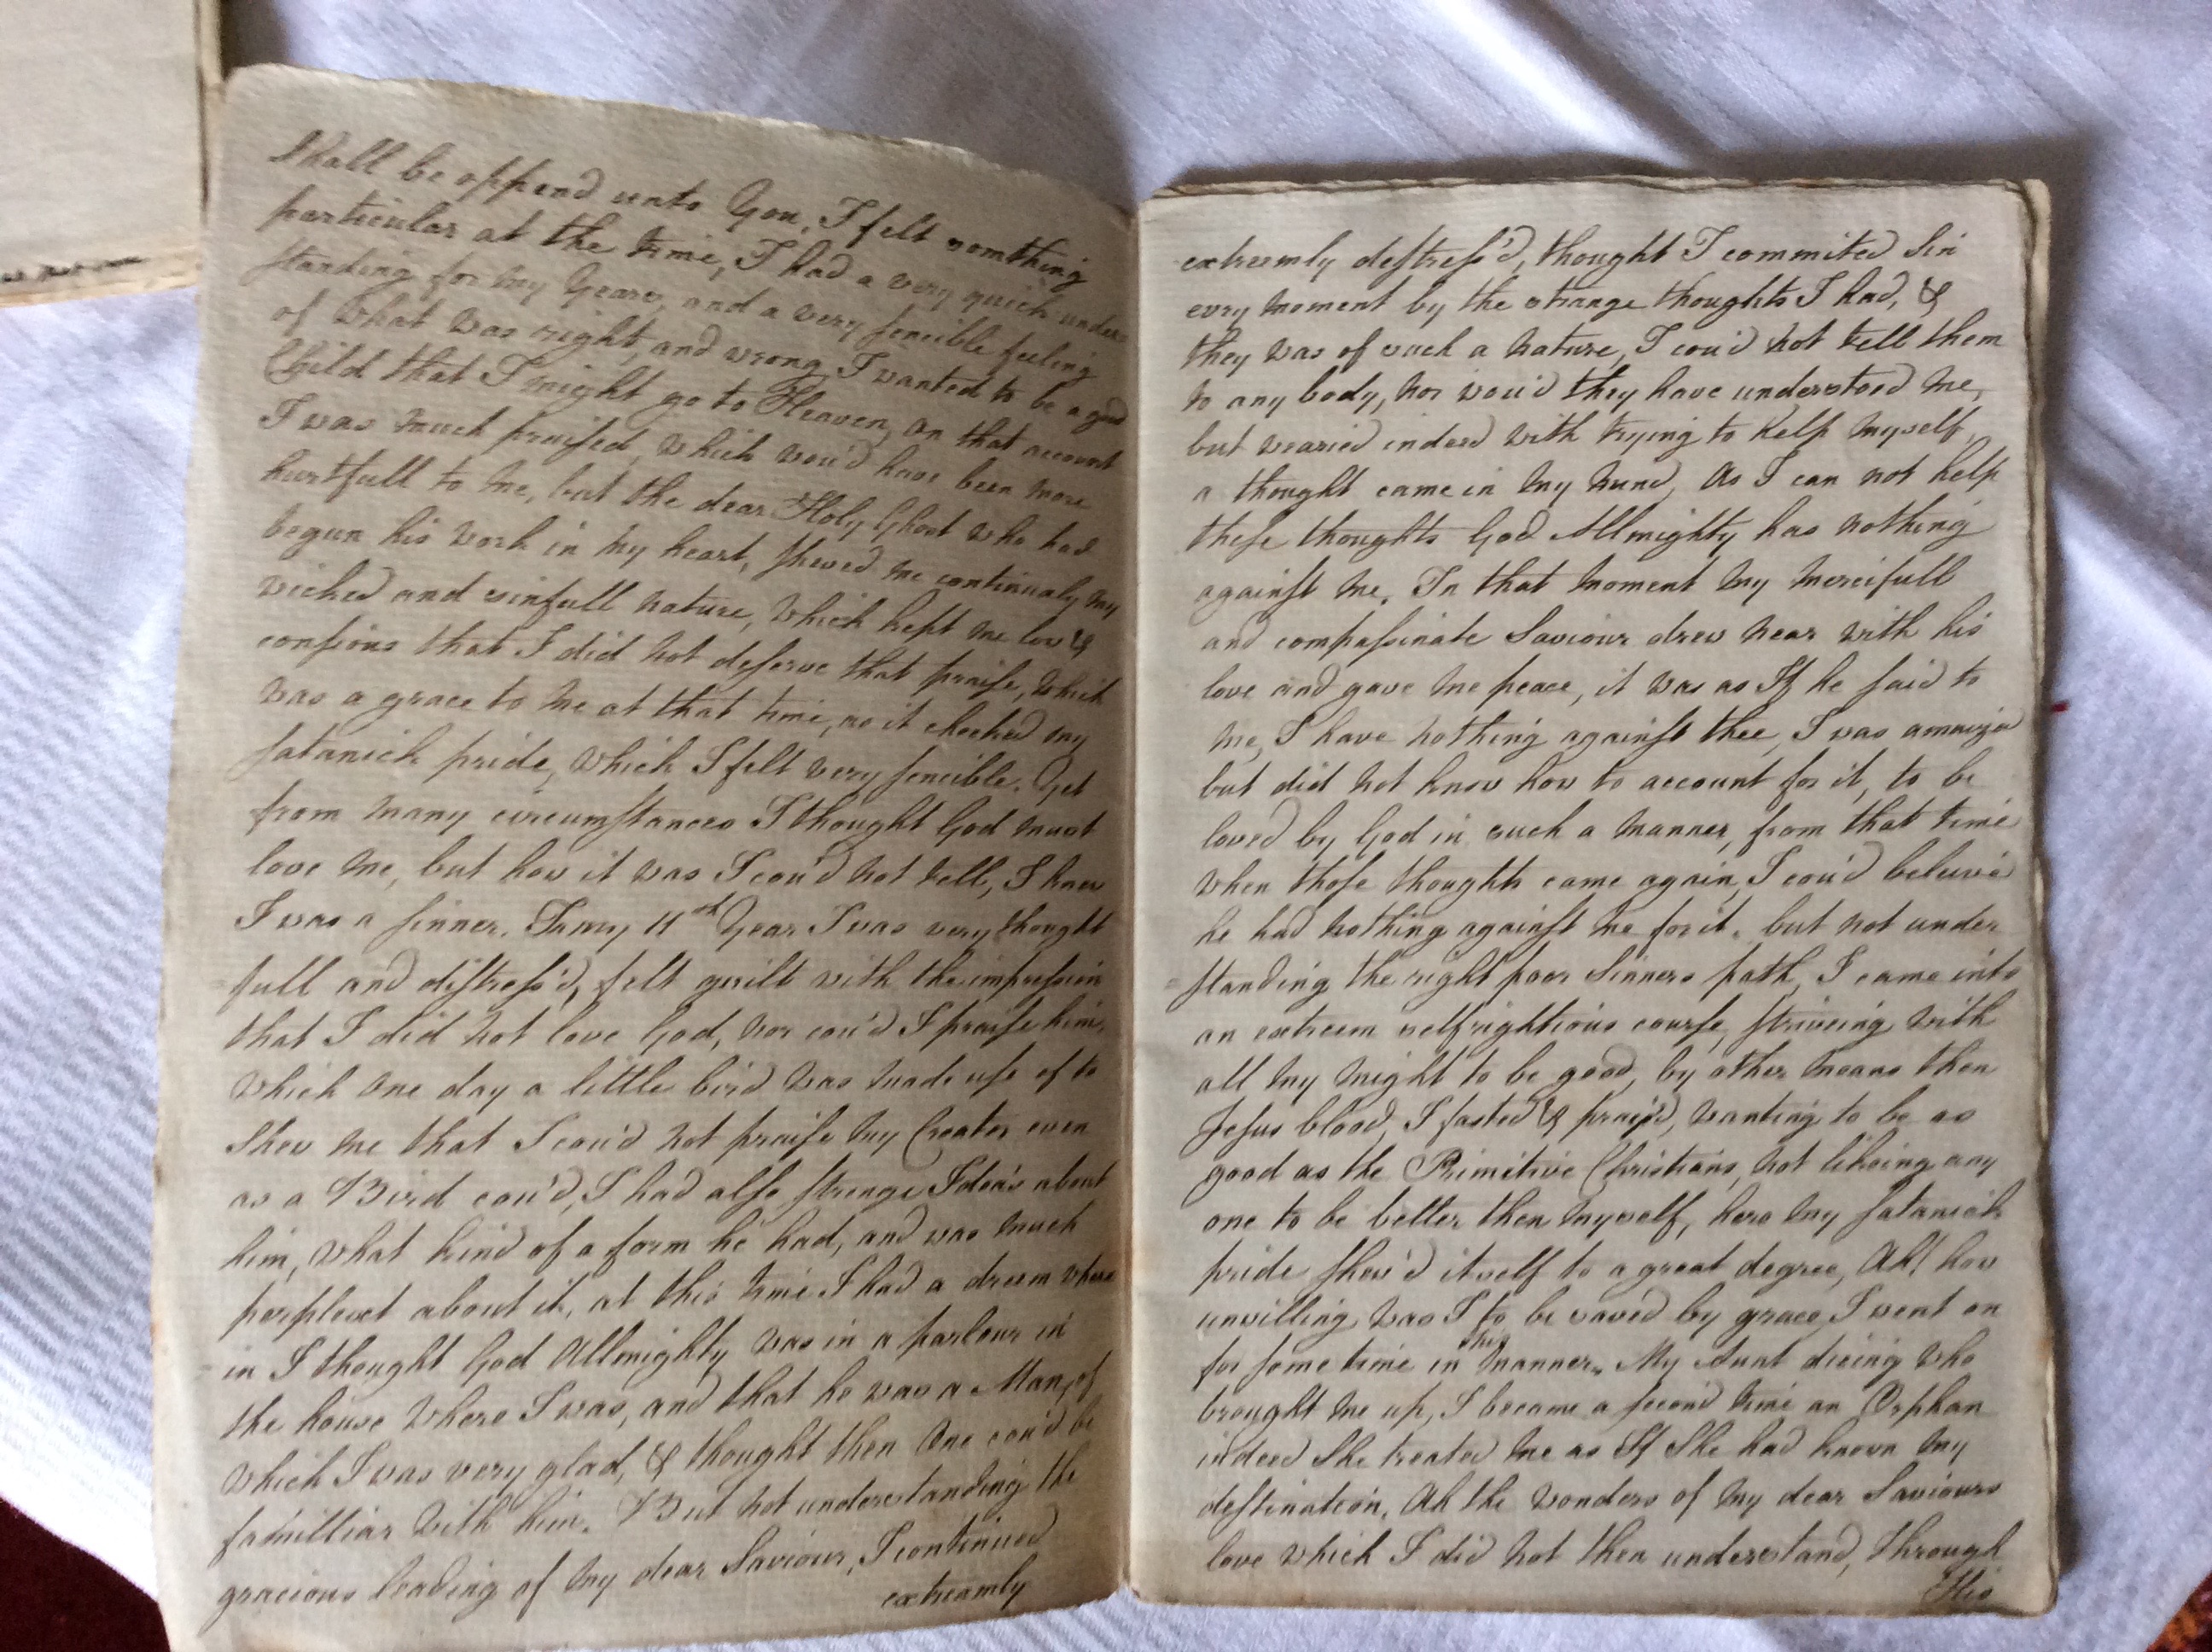 Shall be oppend unto You, I felt somthing
particular at the time, I had a very quick under
standing for my Years, and a very sencible feeling
of what was right, and wrong, I wanted to be a good
Child that I might go to Heaven, on that account
I was much praised, which wou'd have been more
hurtfull to me, but the dear Holy Ghost who had
begun his work in my heart, shewed me continualy my
wicked and sinfull nature, which kept me low &
consious that I did not deserve that praise, which
was a grace to me at that time, as it checked my
satanick pride, which I felt very sencible. Yet
from many circumstances I thought God must
love me, but how it was I cou'd not tell, I knew
I was a sinner. In my 11th Year I was very thought
full and distress'd, felt guilt with the impression
that I did not love God, nor cou'd I praise him.
which one day a little bird was made use of to
shew me that I cou'd not praise my Creator even
as a Bird cou'd, I had also strange Ideas about
him, what kind of a form he had, and was much
perplext about it, at this time I had a dream where
in I thought God Allmighty was in a parlour in
the house where I was, and that he was a Man, of
which I was very glad, & thought then One cou'd be
familliar with him. But not understanding the
gracious leading of my dear Saviour, I continued
extreamly
extreemly destress'd, thought I commited Sin
evry moment by the strange thoughts I had, &
they was of such a nature, I cou'd not tell them
to any body, nor wou'd they have understood me,
but wearied indeed with trying to help myself,
a thought came in my mind, As I can not help
these thoughts God Allmighty has nothing
against me. In that moment my mercifull
and compassinate Saviour drew near with his
love and gave me peace, it was as If he said to
me, I have nothing against thee, I was amaizd
but did not know how to account for it, to be
loved by God in such a manner, from that time
when those thoughts came again, I cou'd beleive
he had nothing against me for it. but not under
standing the right poor Sinners path, I came into
an extreem selfrightious course, striveing with
all my might to be good, by other means then
Jesus blood, I fasted & pray'd, wanting to be as
good as the Primitive Christians, not likeing any
one to be better then myself, here my satanick
pride shew'd itself to a great degree, Ah! how
unwilling was I to be saved by grace, I went on
for some time in this manner. My Aunt dieing who
brought me up, I became a second time an Orphan
indeed She treated me as If She had known my
destination, Ah the wonders of my dear Saviours
love which I did not then understand, through
His